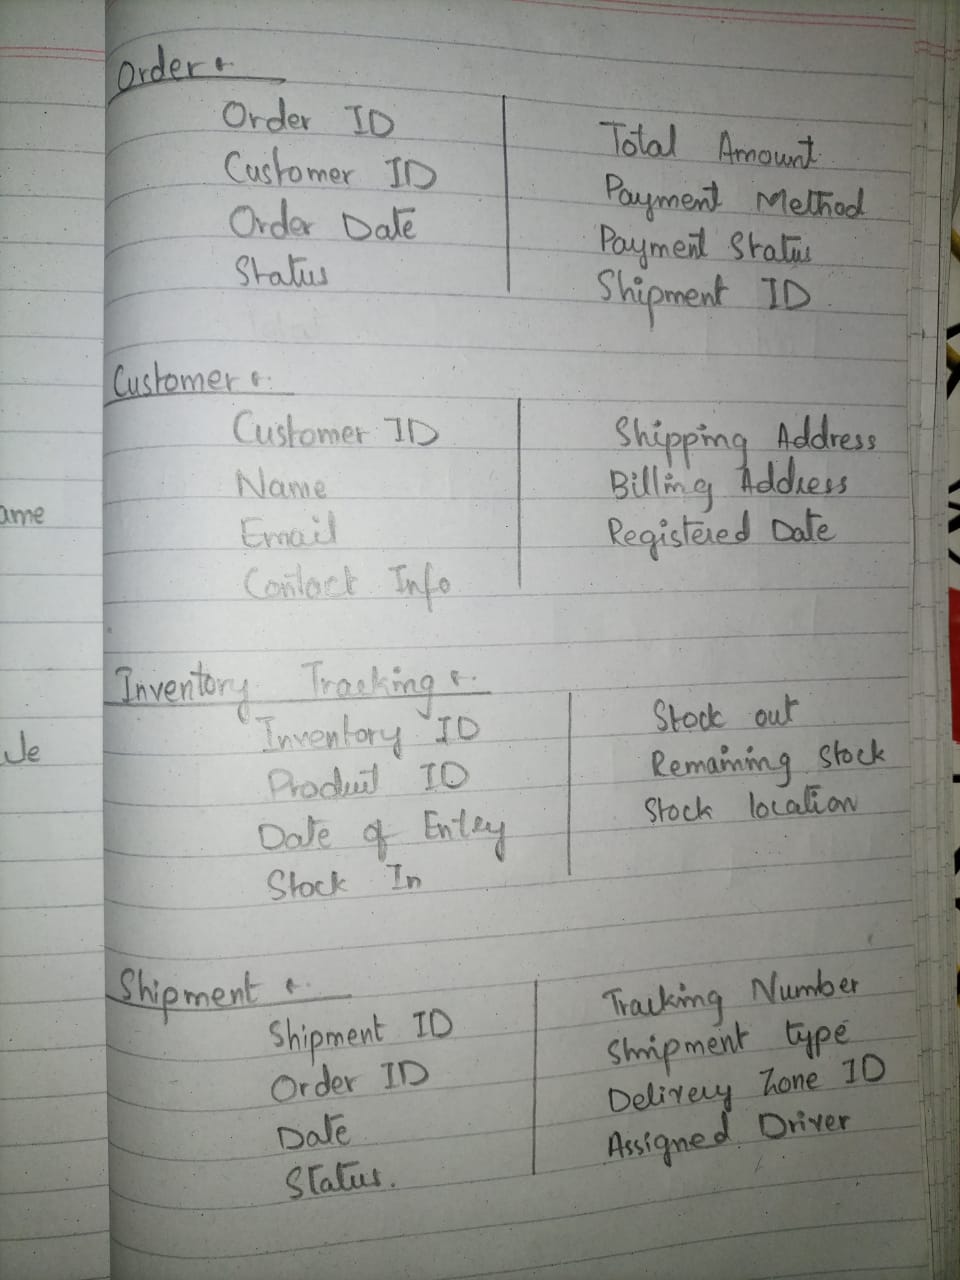 Order :-
Order ID
Customer ID
Order Date
Status
Total Amount
Payment Method
Payment Status
Shipment ID
Customer :-
Customer ID
Name
Email
Contact Info
Shipping Address
Billing Address
Registered Date
Inventory Tracking :-
Inventory ID
Product ID
Date of Entry
Stock In
Stock out
Remaining Stock
Stock location
Shipment :-
Shipment ID
Order ID
Date
Status.
Tracking Number
Shipment type
Delivery Zone ID
Assigned Driver
ame